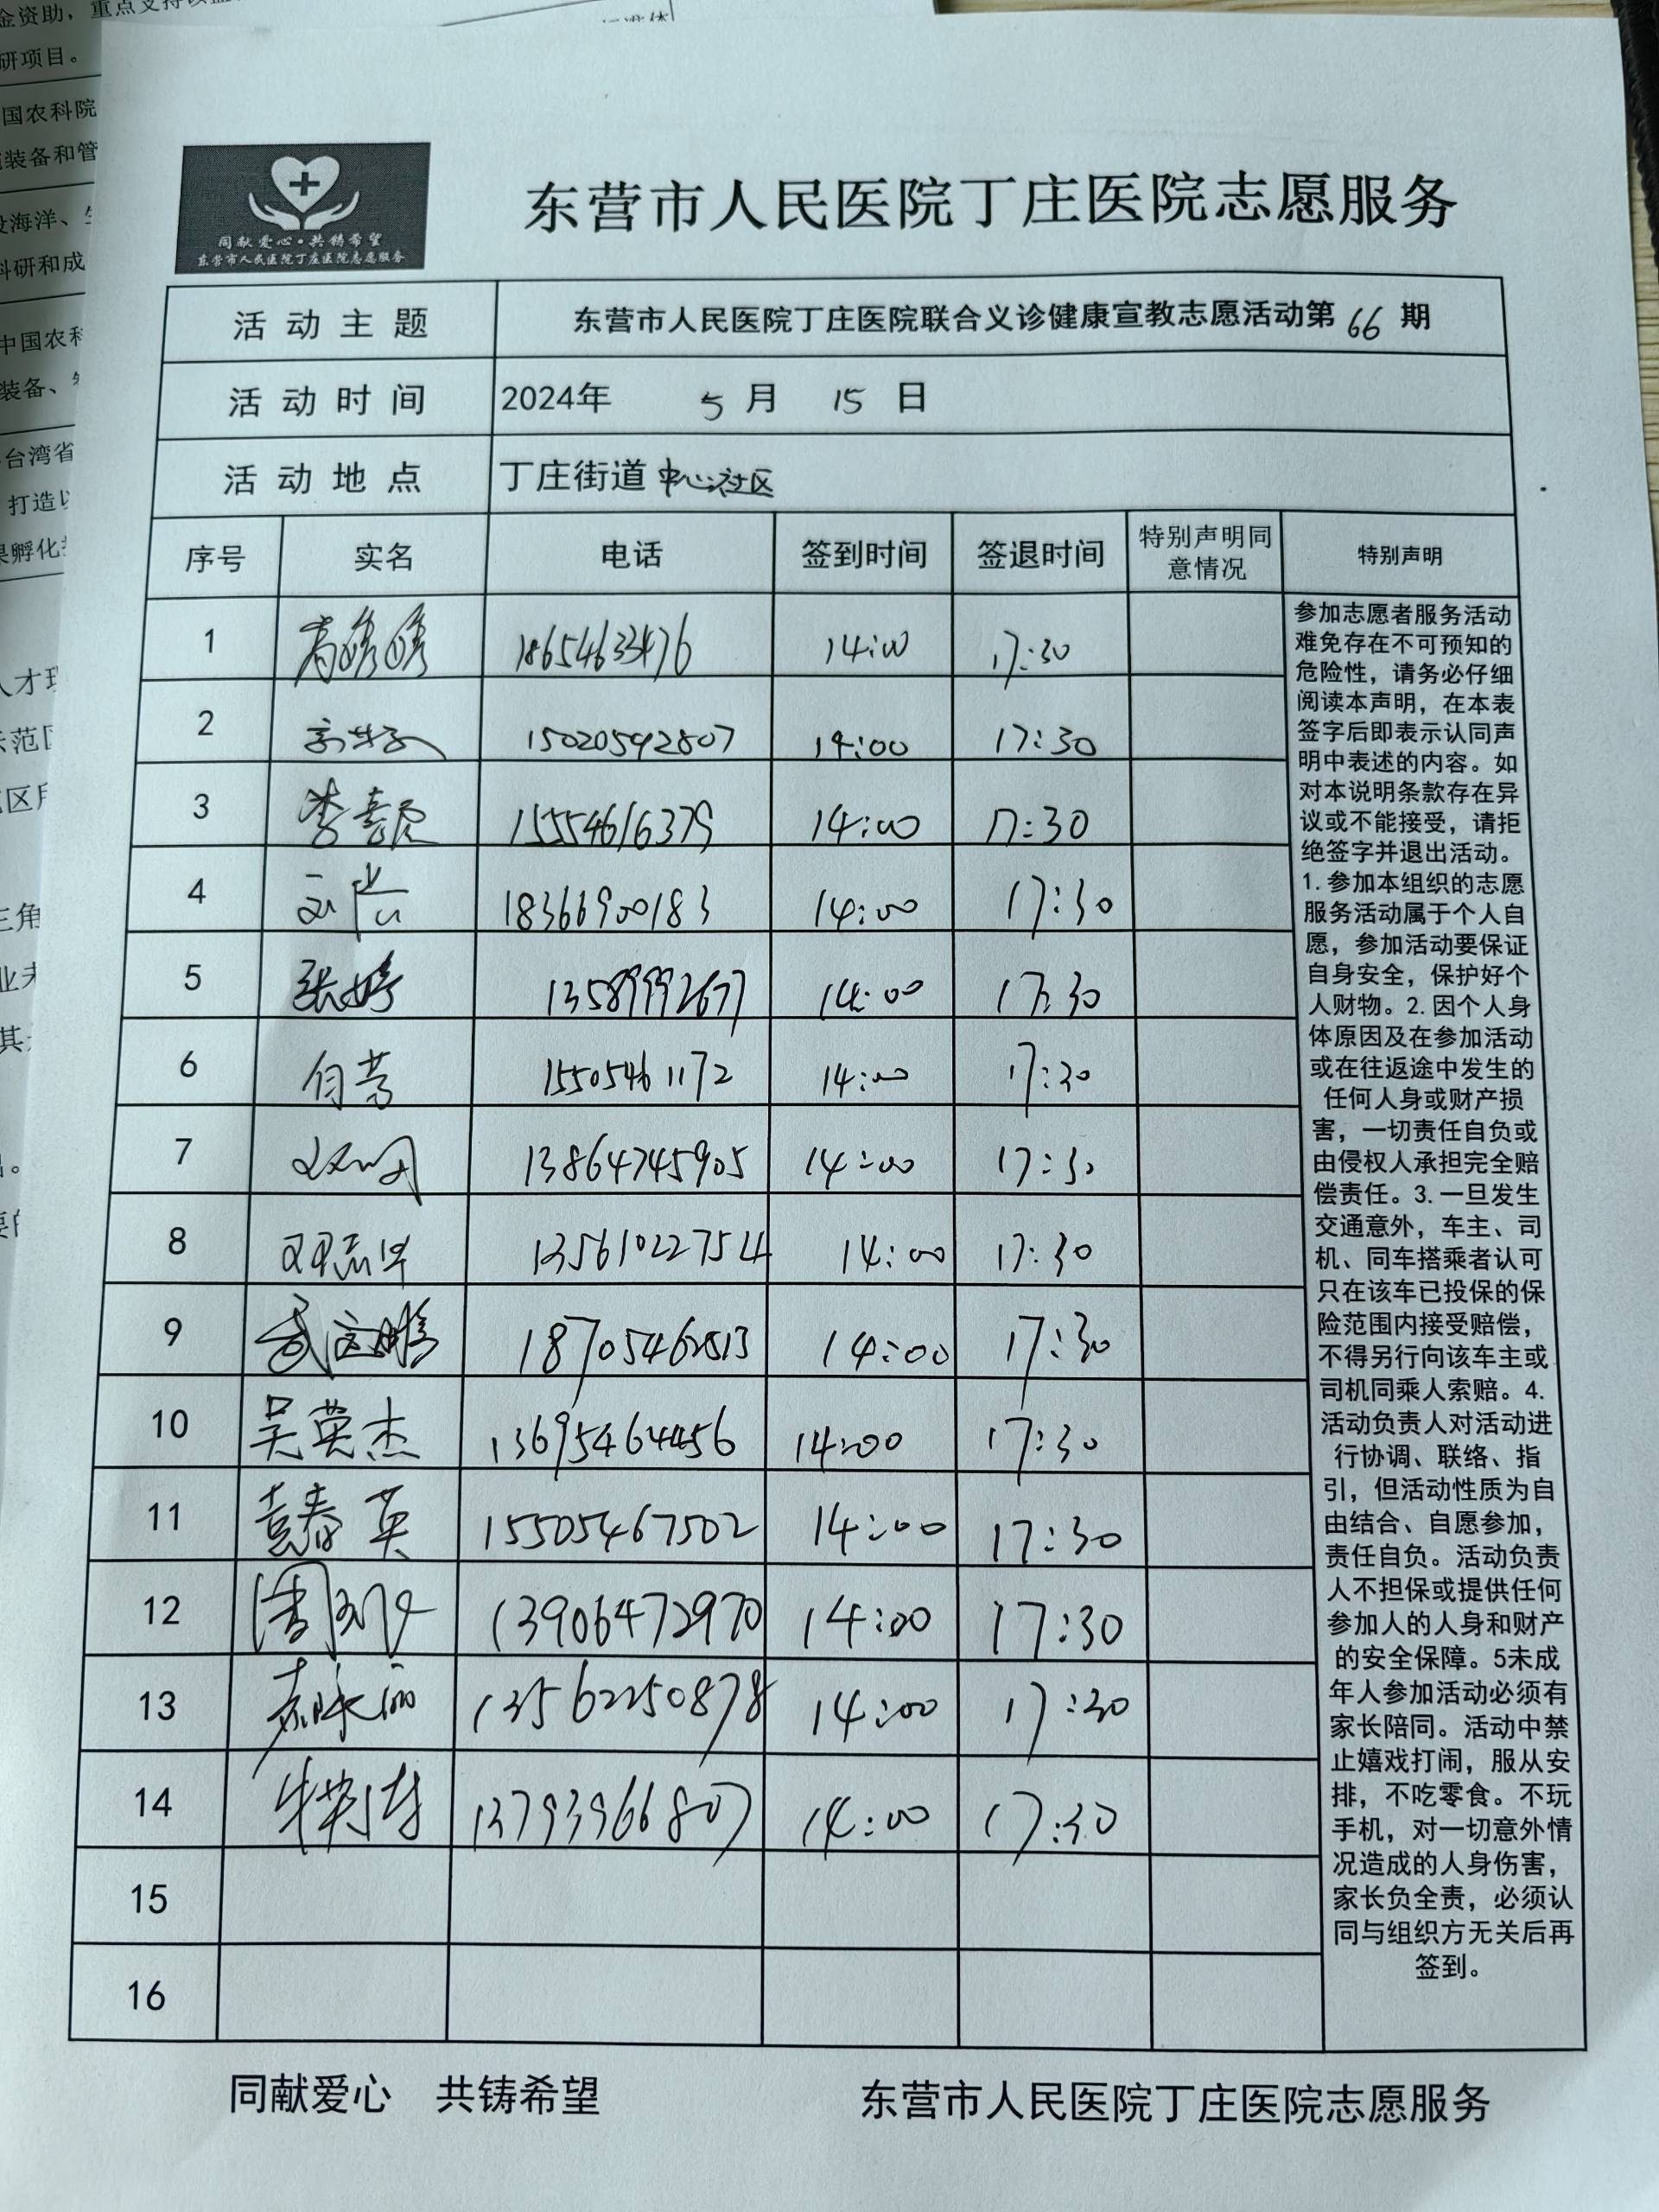 金资助，重点支持
研项目。
国农科院
装备和管
海洋、
科研和成
中国农科
装备、
台湾省
打造以
孵化
人才
示范
区
三角
业
其
同献爱心·共铸希望
东营市人民医院丁庄医院志愿服务
东营市人民医院丁庄医院志愿服务
活动主题 东营市人民医院丁庄医院联合义诊健康宣教志愿活动第66期
活动时间 2024年 5月 15日
活动地点 丁庄街道中心社区
序号 实名 电话 签到时间 签退时间 特别声明同意情况 特别声明
1 18654633476 14:00 17:30
2 15020592807 14:00 17:30
3 15554616379 14:00 17:30
4 18366900183 14:00 17:30
5 张婷 13589992677 14:00 17:30
6 15505461172 14:00 17:30
7 13864745905 14:00 17:30
8 邓志华 13561022754 14:00 17:30
9 18705462513 14:00 17:30
10 吴英杰 13695464456 14:00 17:30
11 袁春英 15505467502 14:00 17:30
12 13906472970 14:00 17:30
13 13562250878 14:00 17:30
14 13793966807 14:00 17:30
15
16
参加志愿者服务活动
难免存在不可预知的
危险性，请务必仔细
阅读本声明，在本表
签字后即表示认同声
明中表述的内容。如
对本说明条款存在异
议或不能接受，请拒
绝签字并退出活动。
1.参加本组织的志愿
服务活动属于个人自
愿，参加活动要保证
自身安全，保护好个
人财物。2.因个人身
体原因及在参加活动
或在往返途中发生的
任何人身或财产损
害，一切责任自负或
由侵权人承担完全赔
偿责任。3.一旦发生
交通意外，车主、司
机、同车搭乘者认可
只在该车已投保的保
险范围内接受赔偿，
不得另行向该车主或
司机同乘人索赔。4.
活动负责人对活动进
行协调、联络、指
引，但活动性质为自
由结合、自愿参加，
责任自负。活动负责
人不担保或提供任何
参加人的人身和财产
的安全保障。5未成
年人参加活动必须有
家长陪同。活动中禁
止嬉戏打闹，服从安
排，不吃零食。不玩
手机，对一切意外情
况造成的人身伤害，
家长负全责，必须认
同与组织方无关后再
签到。
同献爱心 共铸希望 东营市人民医院丁庄医院志愿服务